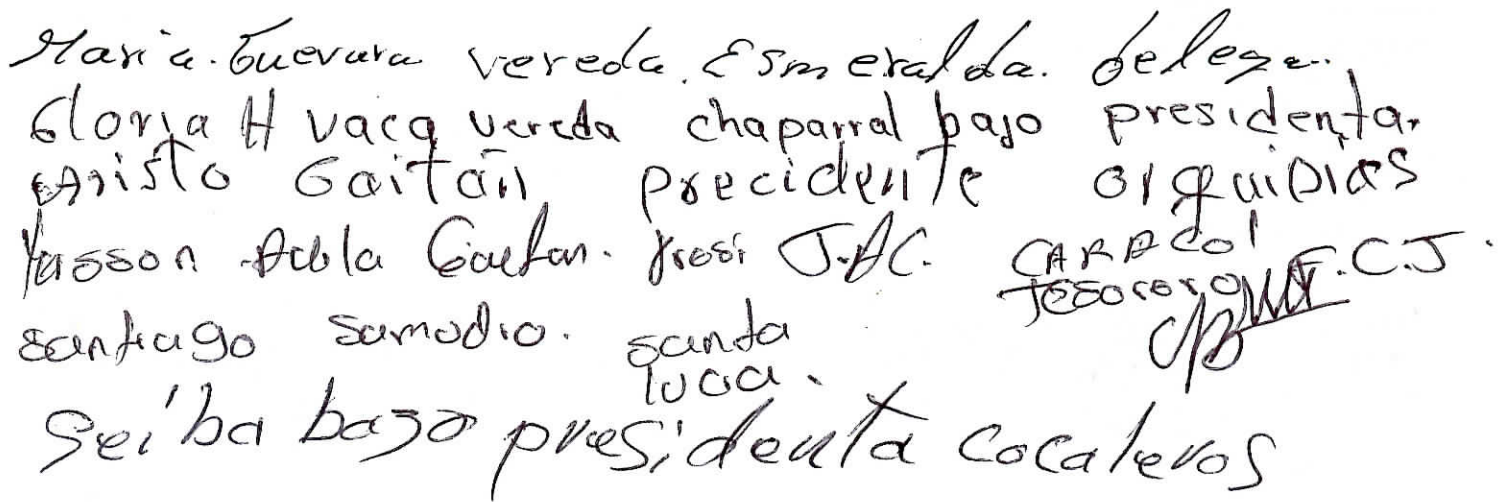 Maria. Guevara vereda. Esmeralda. delega..
Gloria H vaca vereda chaparral bajo presidenta.
Aristo Gaitán precidente orquidias
Yasson Gaitan. J.A.C. CARACOl
Tesorero F.C.J.
santiago samodio. santa
lucia.
Seiba bajo presidenta cocaleros